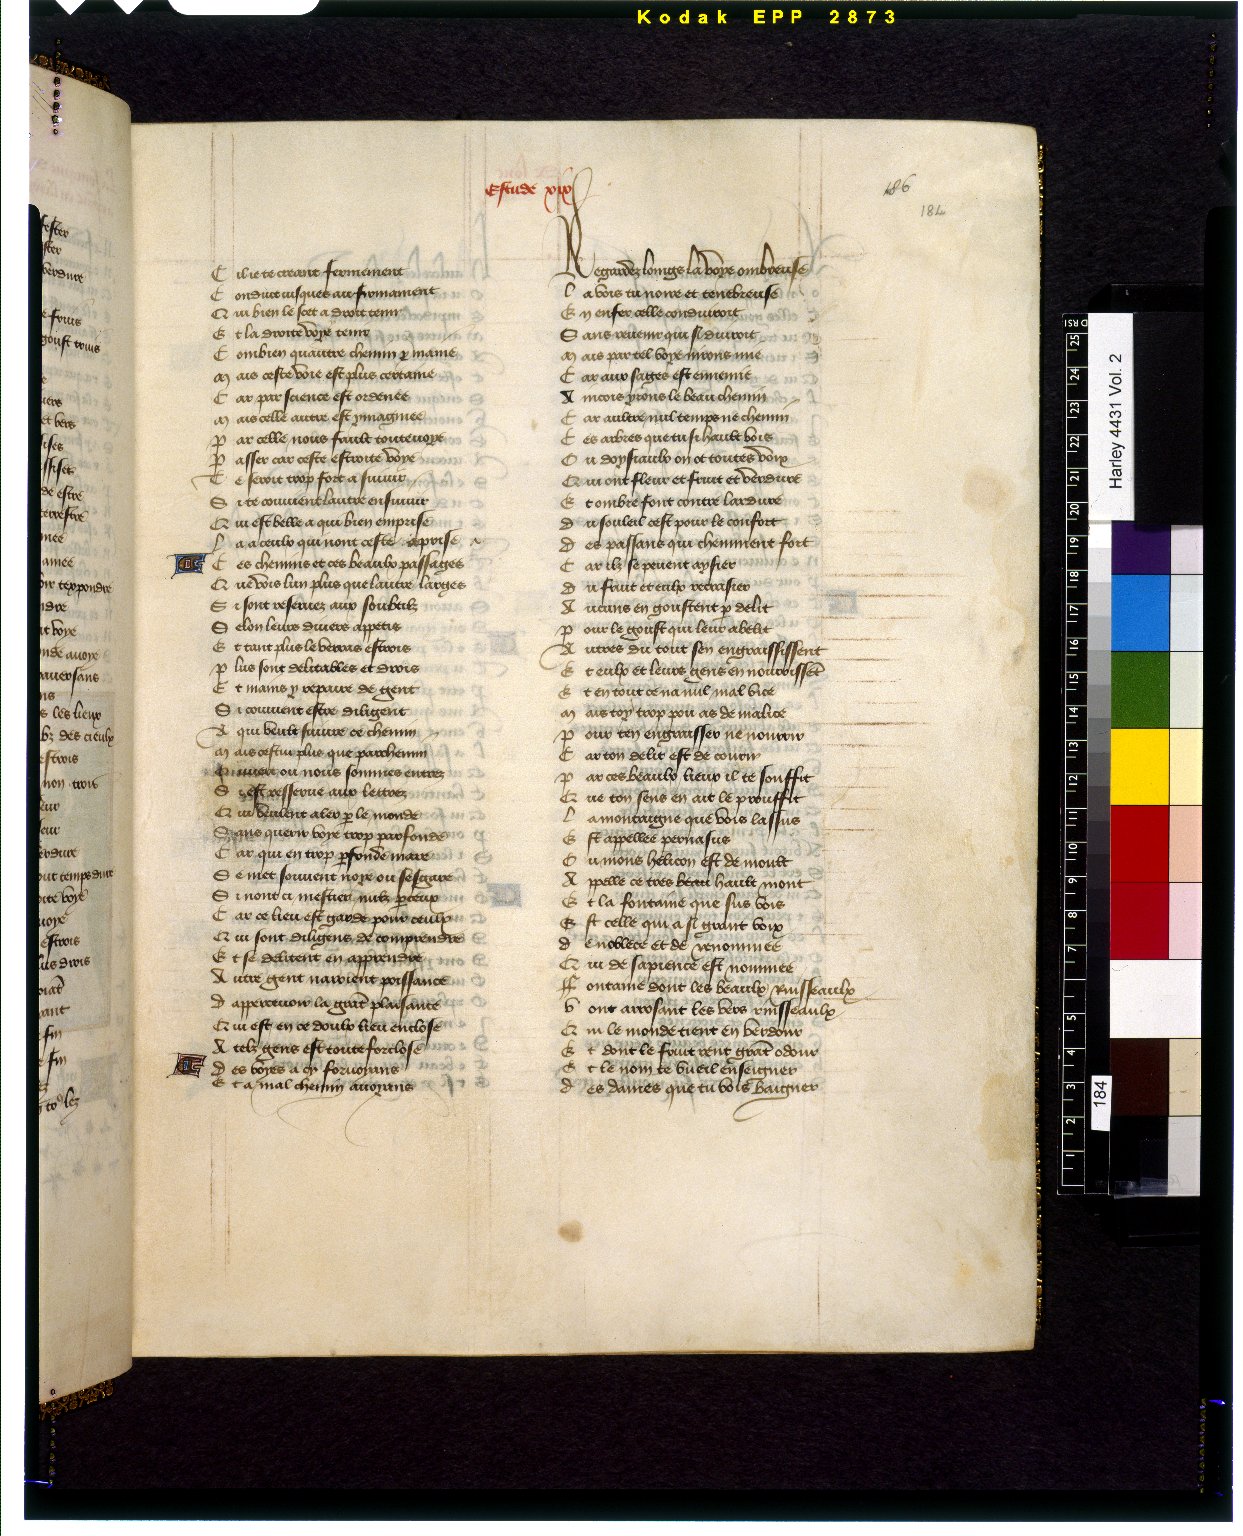 Kodak EPP 2873
Estude xix
186
184
C il ie te creant fermement
C onduire iusques au firmament
Q ui bien le scet a droit tenir
E t la droite voye tenir
C ombien quautre chemin y maine
M ais ceste voie est plus certaine
C ar par science est ordenee
M ais celle autre est ymaginee
P ar celle nous fault toute voye
P asser car ceste estroite voye
T e seroit trop fort a suiuir
S i te conuient lautre ensuiuir
Q ui est belle a qui bien emprise
L a a ceulx qui nont ceste aprise
C es chemins et ces beaulx passages
Q ue vois lun plus que lautre larges
S i sont reseruez aux soubtilz
S elon leurs diuers appetis
E t tant plus le verras estrois
P lus sont delitables et drois
E t mains y repaire de gent
S i conuient estre diligent
A qui veult suiure ce chemin
M ais cestui plus que parchemin
ou nous sommes entrez
S i est reserue aux lettrez
Q ui veulent aler p le monde
S ans querir voye trop parfonde
C ar qui en trop pfonde mare
S e met souuent noye ou sesgare
S i nont ci mestier nulz
C ar ce lieu est garde pour ceulx
Q ui sont diligens de comprendre
E t se delitent en apprendre
A utre gent naroient poissance
D apperceuoir la grant plaisance
Q ui est en ce doulx lieu enclose
A telz gens est toute forclose
D es voyes a cy foruoyans
E t a mal chemin auoyans
R egardez loings la voye ombreuse
L a vois tu noire et tenebreuse
E n enfer celle conduiroit
S ans reuenir qui si duiroit
M ais par tel voye nirons mie
C ar aux sages est ennemie
A incois yrons le beau chemin
C ar aultre nul temps ne chemin
C es arbres que tu si hault vois
O u doyfiaulx on ot toutes voix
Q ui ont fleur et fruit et verdure
E t ombre font contre lardure
D u souleil cest pour le confort
D es passans qui cheminent fort
C ar ilz se peuent aysier
D u fruit et eulx rassasier
A ucuns en goustent p delit
P our le goust qui leur abelit
A utres du tout sen engraississent
E t eulx et leurs gens en nourrissent
E t en tout ce na nul mal vice
M ais toy trop pou as de malice
P our ten engraisser ne nourrir
C ar ton delit est de courir
P ar ces beaulx lieux il te souffit
Q ue ton sens en ait le prouffit
L a montaigne que vois lassus
E st appellee pernasus
O u mons helicon est de moult
A ppelle ce tres beau hault mont
E t la fontaine que sus vois
E st celle qui a si grant voix
D e noblece et de renommee
Q ui de sapience est nommee
F ontaine dont les beaulx ruisseaulx
V ont arrosant les vers ruisseaulx
Q ui le monde tient en verdour
E t dont le fruit rent grant odour
E t le nom te vueil enseigner
D es dames que tu vois baigner
Harley 4431 Vol. 2
184